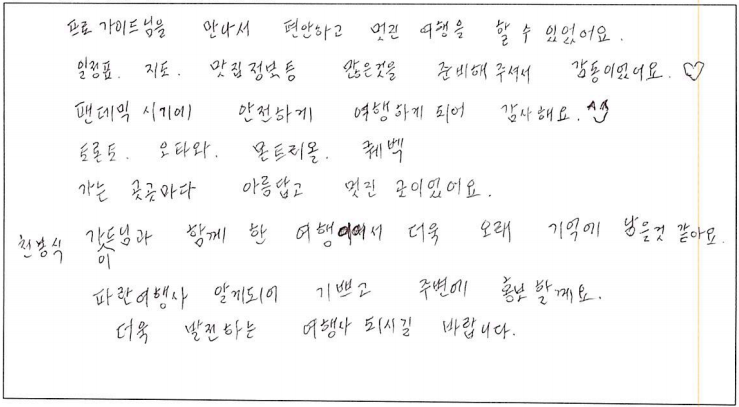 프로 가이드님을 만나서 편안하고 멋진 여행을 할 수 있었어요.
일정표. 지도. 맛집정보등 많은것을 준비해 주셔서 감동이었어요. ♡
팬데믹 시기에 안전하게 여행하게 되어 감사해요. ^^
토론토. 오타와. 몬트리올. 퀘벡
가는 곳곳마다 아름답고 멋진 곳이었어요.
천봉식 가이드님과 함께 한 여행이어서 더욱 오래 기억에 남을것 같아요.
파란여행사 알게되어 기쁘고 주변에 홍보할게요.
더욱 발전하는 여행사 되시길 바랍니다.